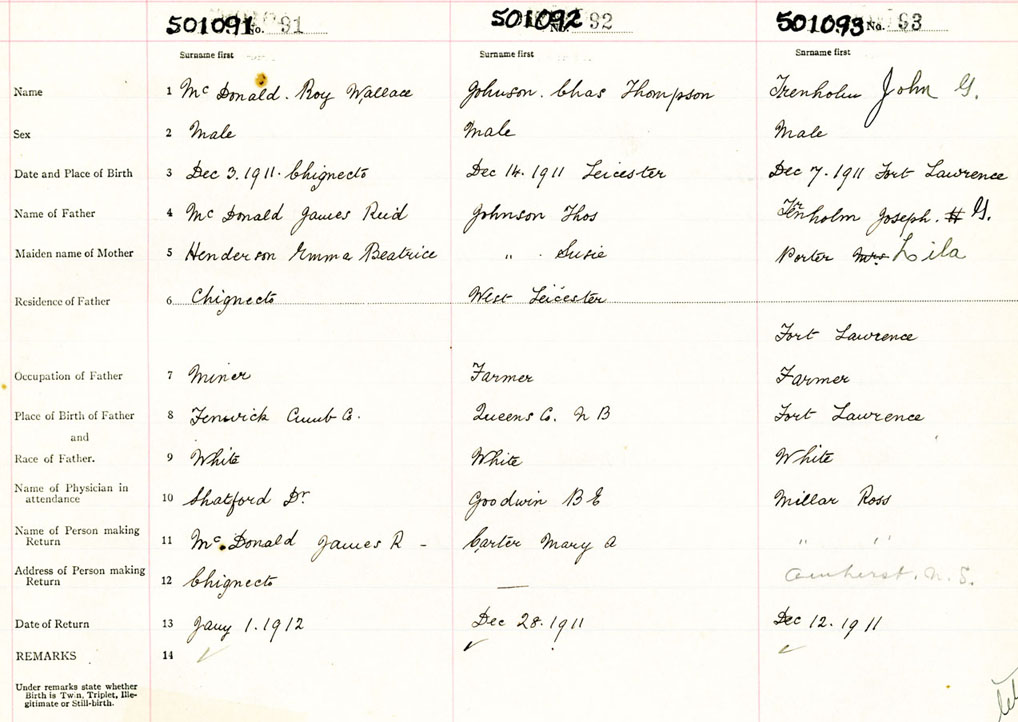 501091 No. 91 501092 No. 92 501093 No. 93
Surname first Surname first Surname first
Name 1 McDonald. Roy Wallace Johnson. Chas Thompson Trenholm John G.
Sex 2 Male Male Male
Date and Place of Birth 3 Dec 3. 1911. Chignecto Dec 14. 1911 Leicester Dec 7. 1911 Fort Lawrence
Name of Father 4 McDonald James Reid Johnson Thos Trenholm Joseph. H G.
Maiden name of Mother 5 Henderson Emma Beatrice " . Susie Porter Mrs Lila
Residence of Father 6 Chignecto West Leicester
Fort Lawrence
Occupation of Father 7 Miner Farmer Farmer
Place of Birth of Father 8 Fenwick Cumb Co. Queens Co. N B Fort Lawrence
and
Race of Father. 9 White White White
Name of Physician in
attendance 10 Shatford Dr. Goodwin B E Millar Ross
Name of Person making
Return 11 Mc.Donald James R - Carter Mary A " "
Address of Person making
Return 12 Chignecto — Amherst. N. S.
Date of Return 13 Jany 1. 1912 Dec 28. 1911 Dec 12. 1911
REMARKS 14 ✓ ✓ ✓
Under remarks state whether
Birth is Twin, Triplet, Ille-
gitimate or Still-birth.